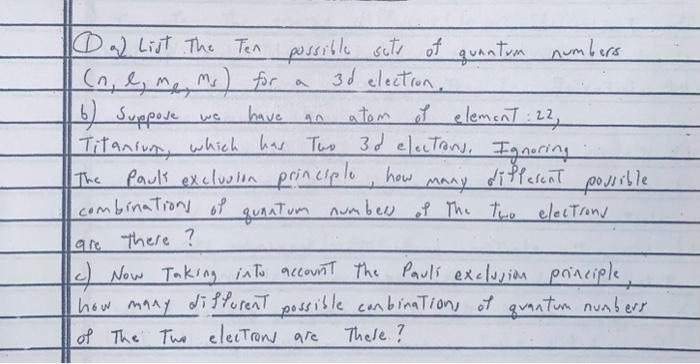 ① a) List The Ten possible sets of quantum numbers
(n, l, mₑ, ms) for a 3d electron.
b) Suppose we have an atom of element : 22,
Titanium, which has Two 3d electrons. Ignoring
The Pauli exclusion principle, how many different possible
combinations of quantum numbers of The two electrons
are there ?
c) Now Taking into account the Pauli exclusion principle,
how many different possible combinations of quantum numbers
of The Two electrons are These ?